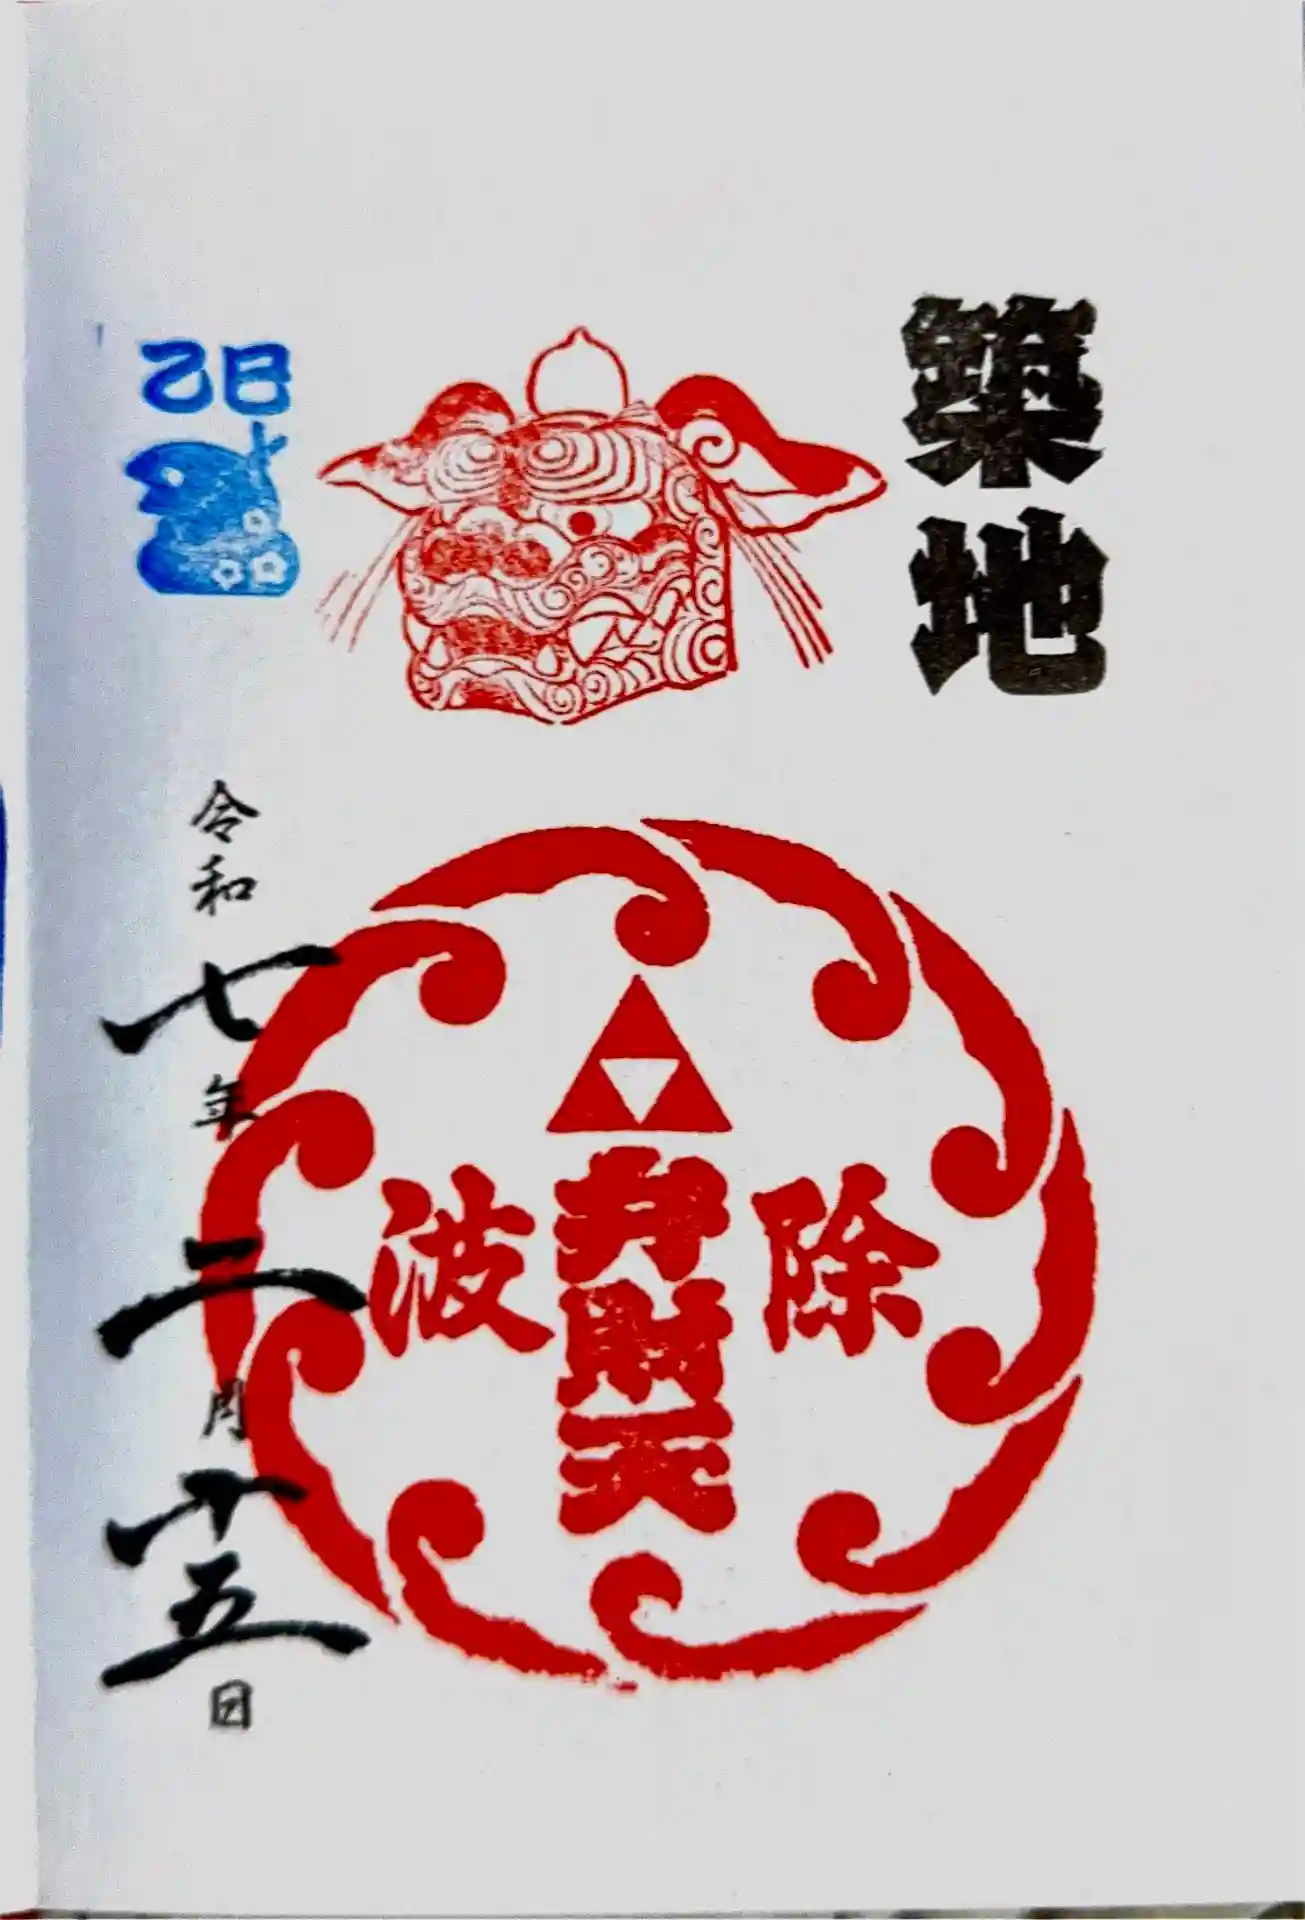 築地
除
弁財天
波
乙巳
令和七年二月十五日